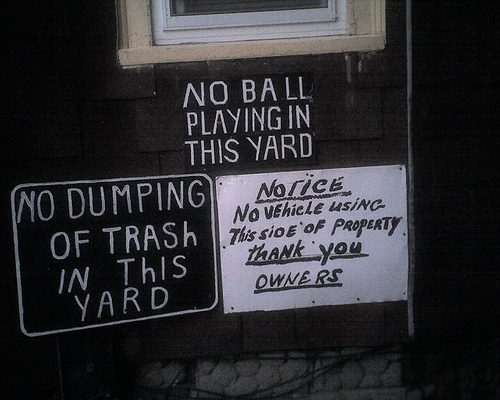 NO BALL
PLAYING IN
THIS YARD
NO DUMPING
OF TRASh
IN ThiS
YARD
NOTICE
NO VEhicle using
This side of PROPERTY
thANK you
OWNERS